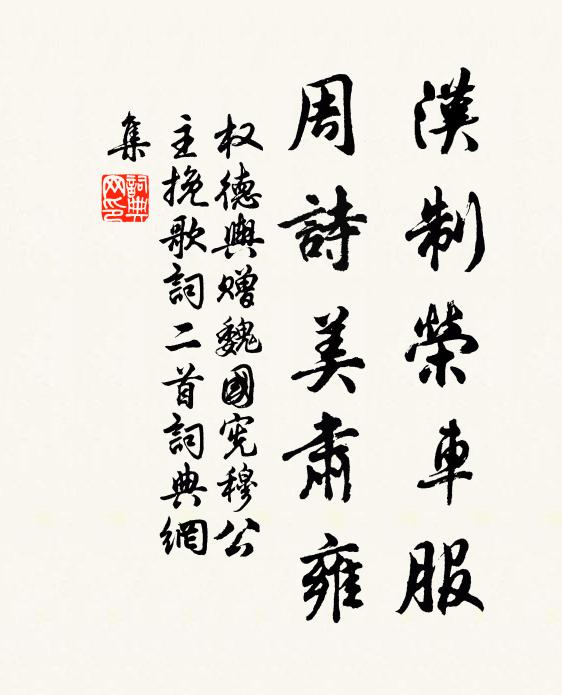 漢制榮車服
周詩美肅雍
权德輿贈魏國宪穆公
主挽歌詞二首詞典網
集
詞典
网印